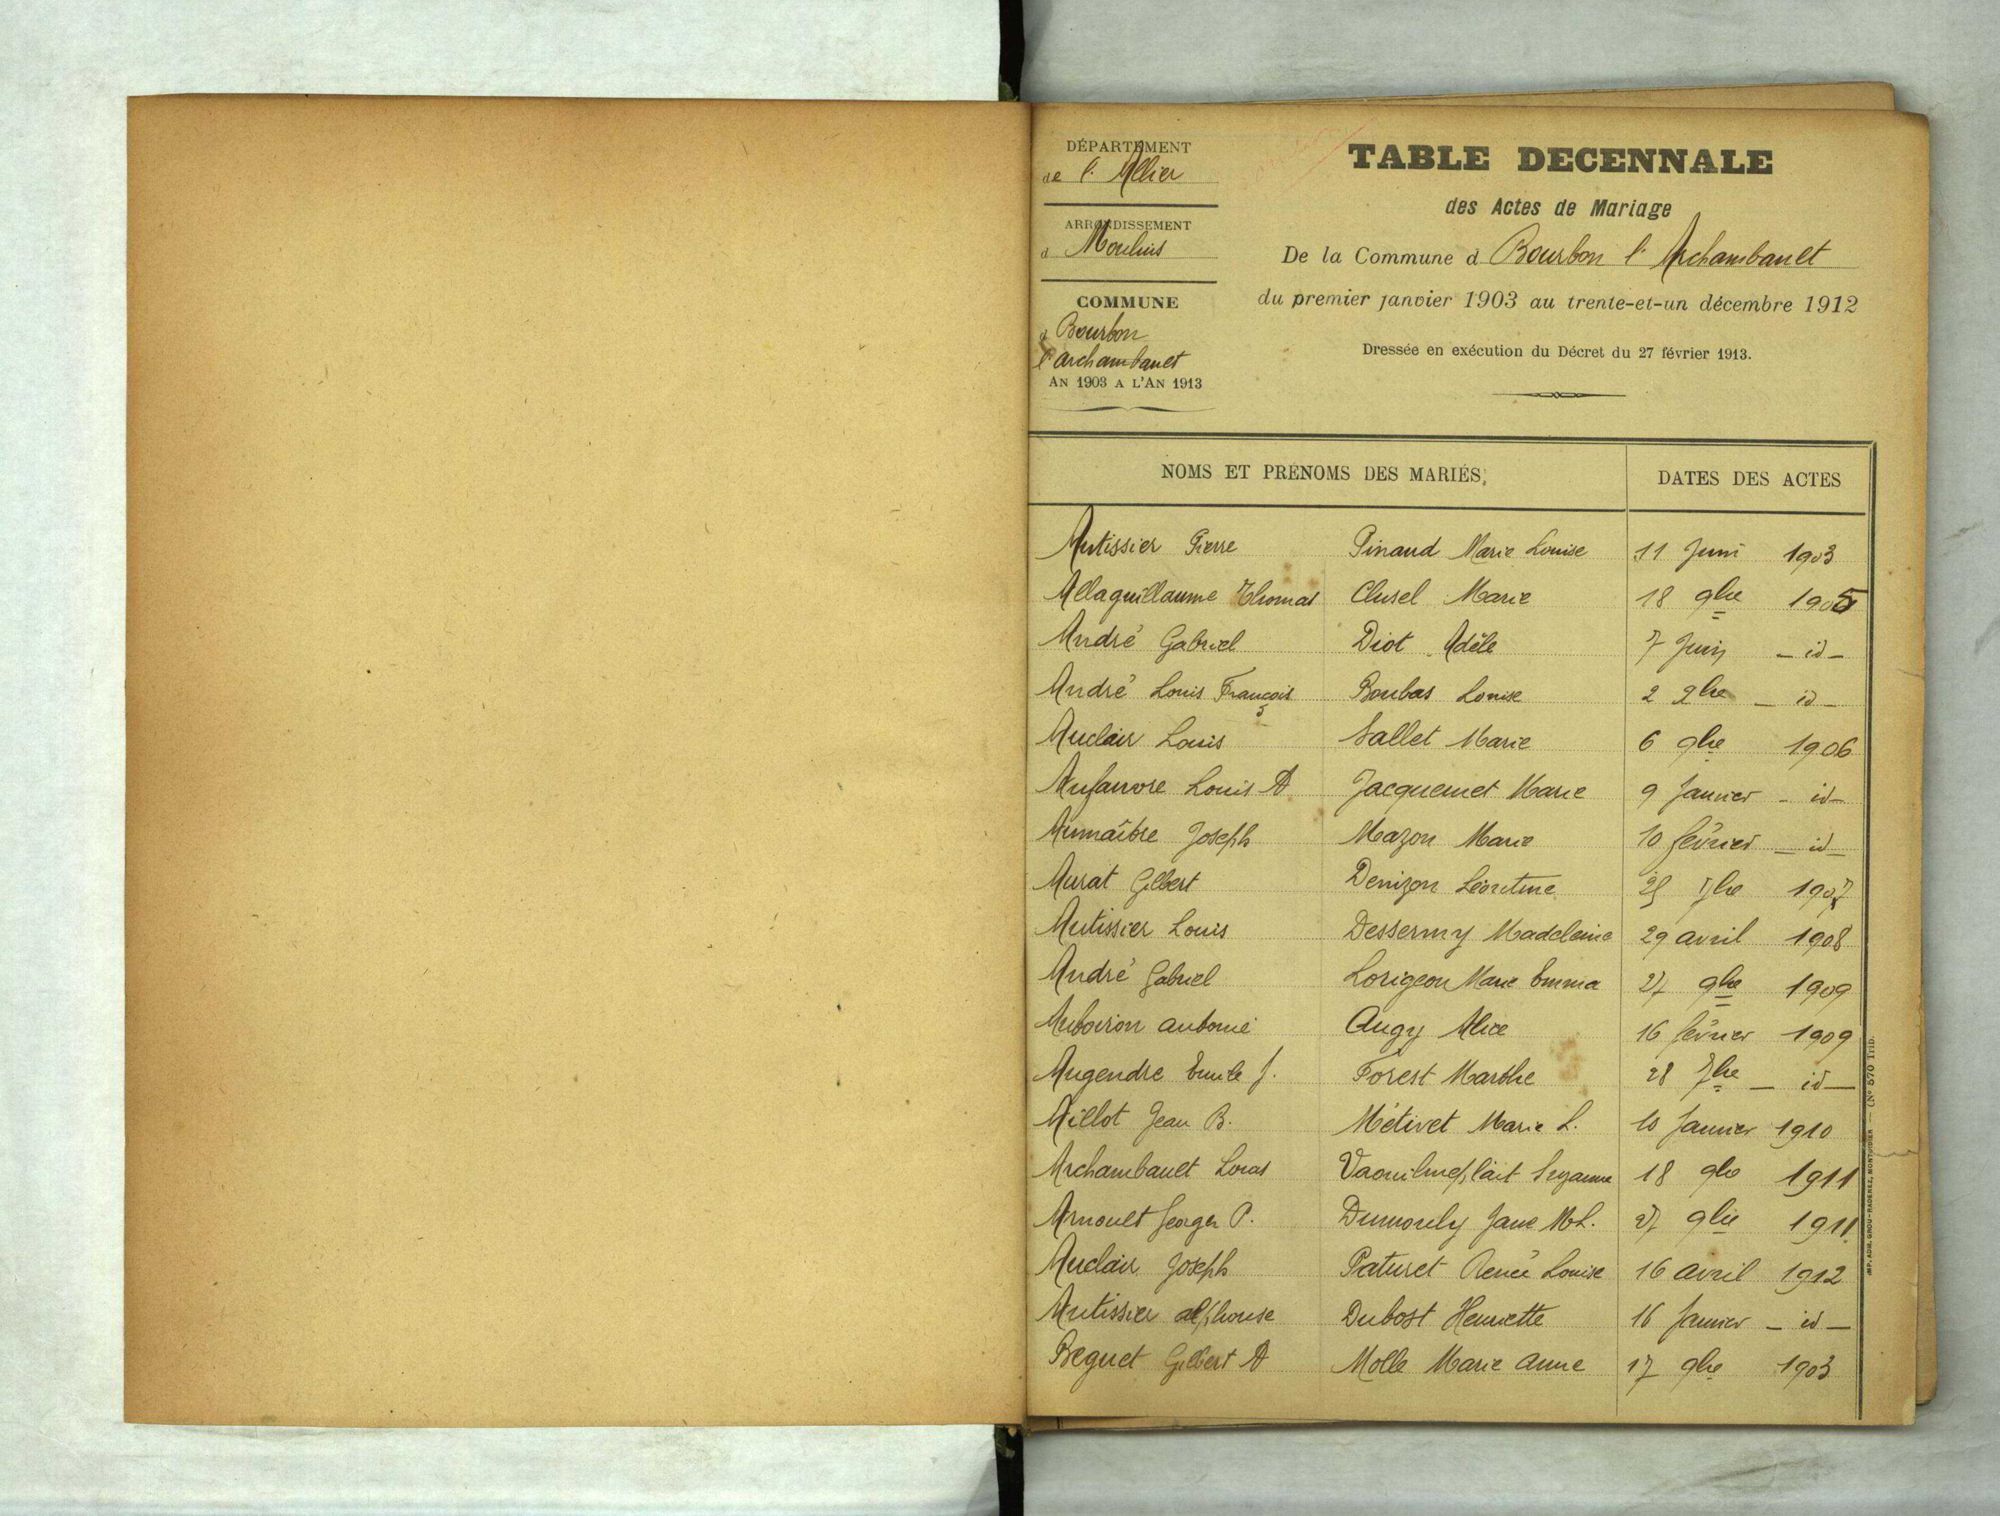 DÉPARTEMENT
de l' Allier
ARRONDISSEMENT
d Moulins
COMMUNE
d Bourbon
l'archambault
AN 1903 A L'AN 1913
TABLE DECENNALE
des Actes de Mariage
De la Commune d Bourbon l' Archambault
du premier janvier 1903 au trente-et-un décembre 1912
Dressée en exécution du Décret du 27 février 1913.
NOMS ET PRÉNOMS DES MARIÉS. DATES DES ACTES
Autissier Pierre Pinaud Marie Louise 11 Juin 1903
Allaguillaume Thomas Clusel Marie 18 9bre 1905
André Gabriel Diot Adèle 7 Juin – id –
André Louis François Boubas Louise 2 9bre – id –
Auclair Louis Sallet Marie 6 9bre 1906
Aufauvre Louis A Jacquemet Marie 9 Janvier – id –
Aumaître Joseph Mazon Marie 10 février – id –
Aurat Gilbert Denizon Léontine 25 7bre 1907
Autissier Louis Dessermy Madeleine 29 avril 1908
André Gabriel Lorigeon Marie Emma 27 9bre 1909
Auboiron antoine Augy Alice 16 février 1909
Augendre Emile J. Forest Marthe 28 7bre – id –
Aillot Jean B. Métivet Marie L. 10 Janvier 1910
Archambault Louis Suzanne 18 9bre 1911
Arnoult Georges P. Dumouly Jane M.L. 27 9bre 1911
Auclair Joseph Paturet Renée Louise 16 avril 1912
Autissier alphonse Dubost Henriette 16 Janvier – id –
Beguet Gilbert A Molle Marie anne 17 9bre 1903
(N° 570 Trib.